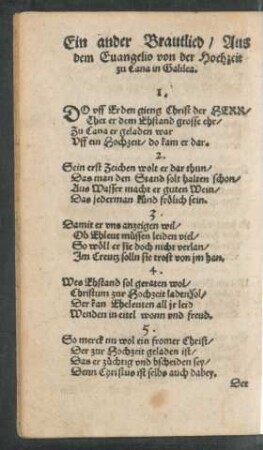 Ein ander Brautlied / Aus
dem Euangelio von der Hochzeit
zu Cana in Galilea.
1.
DO vff Erden gieng Christ der HERR /
Thet er dem Ehstand grosse ehr /
Zu Cana er geladen war
Vff ein Hochzeit / do kam er dar.
2.
Sein erst Zeichen wolt er dar thun /
Das man den Stand solt halten schon /
Aus Wasser macht er guten Wein /
Das jederman kůnd frölich sein.
3.
Damit er vns anzeigen wil /
Ob Ehleut müssen leiden viel /
So wöll er sie doch nicht verlan /
Im Creutz solln sie trost von jm han.
4.
Wes Ehstand sol geraten wol /
Christum zur Hochzeit laden sol /
Der kan Eheleuten all jr leid
Wenden in eitel wonn vnd freud.
5.
So merck nu wol ein fromer Christ /
Der zur Hochzeit geladen ist /
Das er züchtig vnd bscheiden sey /
Denn Christus ist selbs auch dabey.
Der